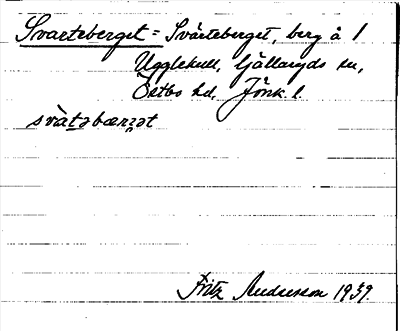 Svarteberget = Svarteberget, berg å 1
Ugglekull, Gällaryds sn,
Östbo hd, Jönk. l.
svàtəbærjət
Fritz Andersson 1939.